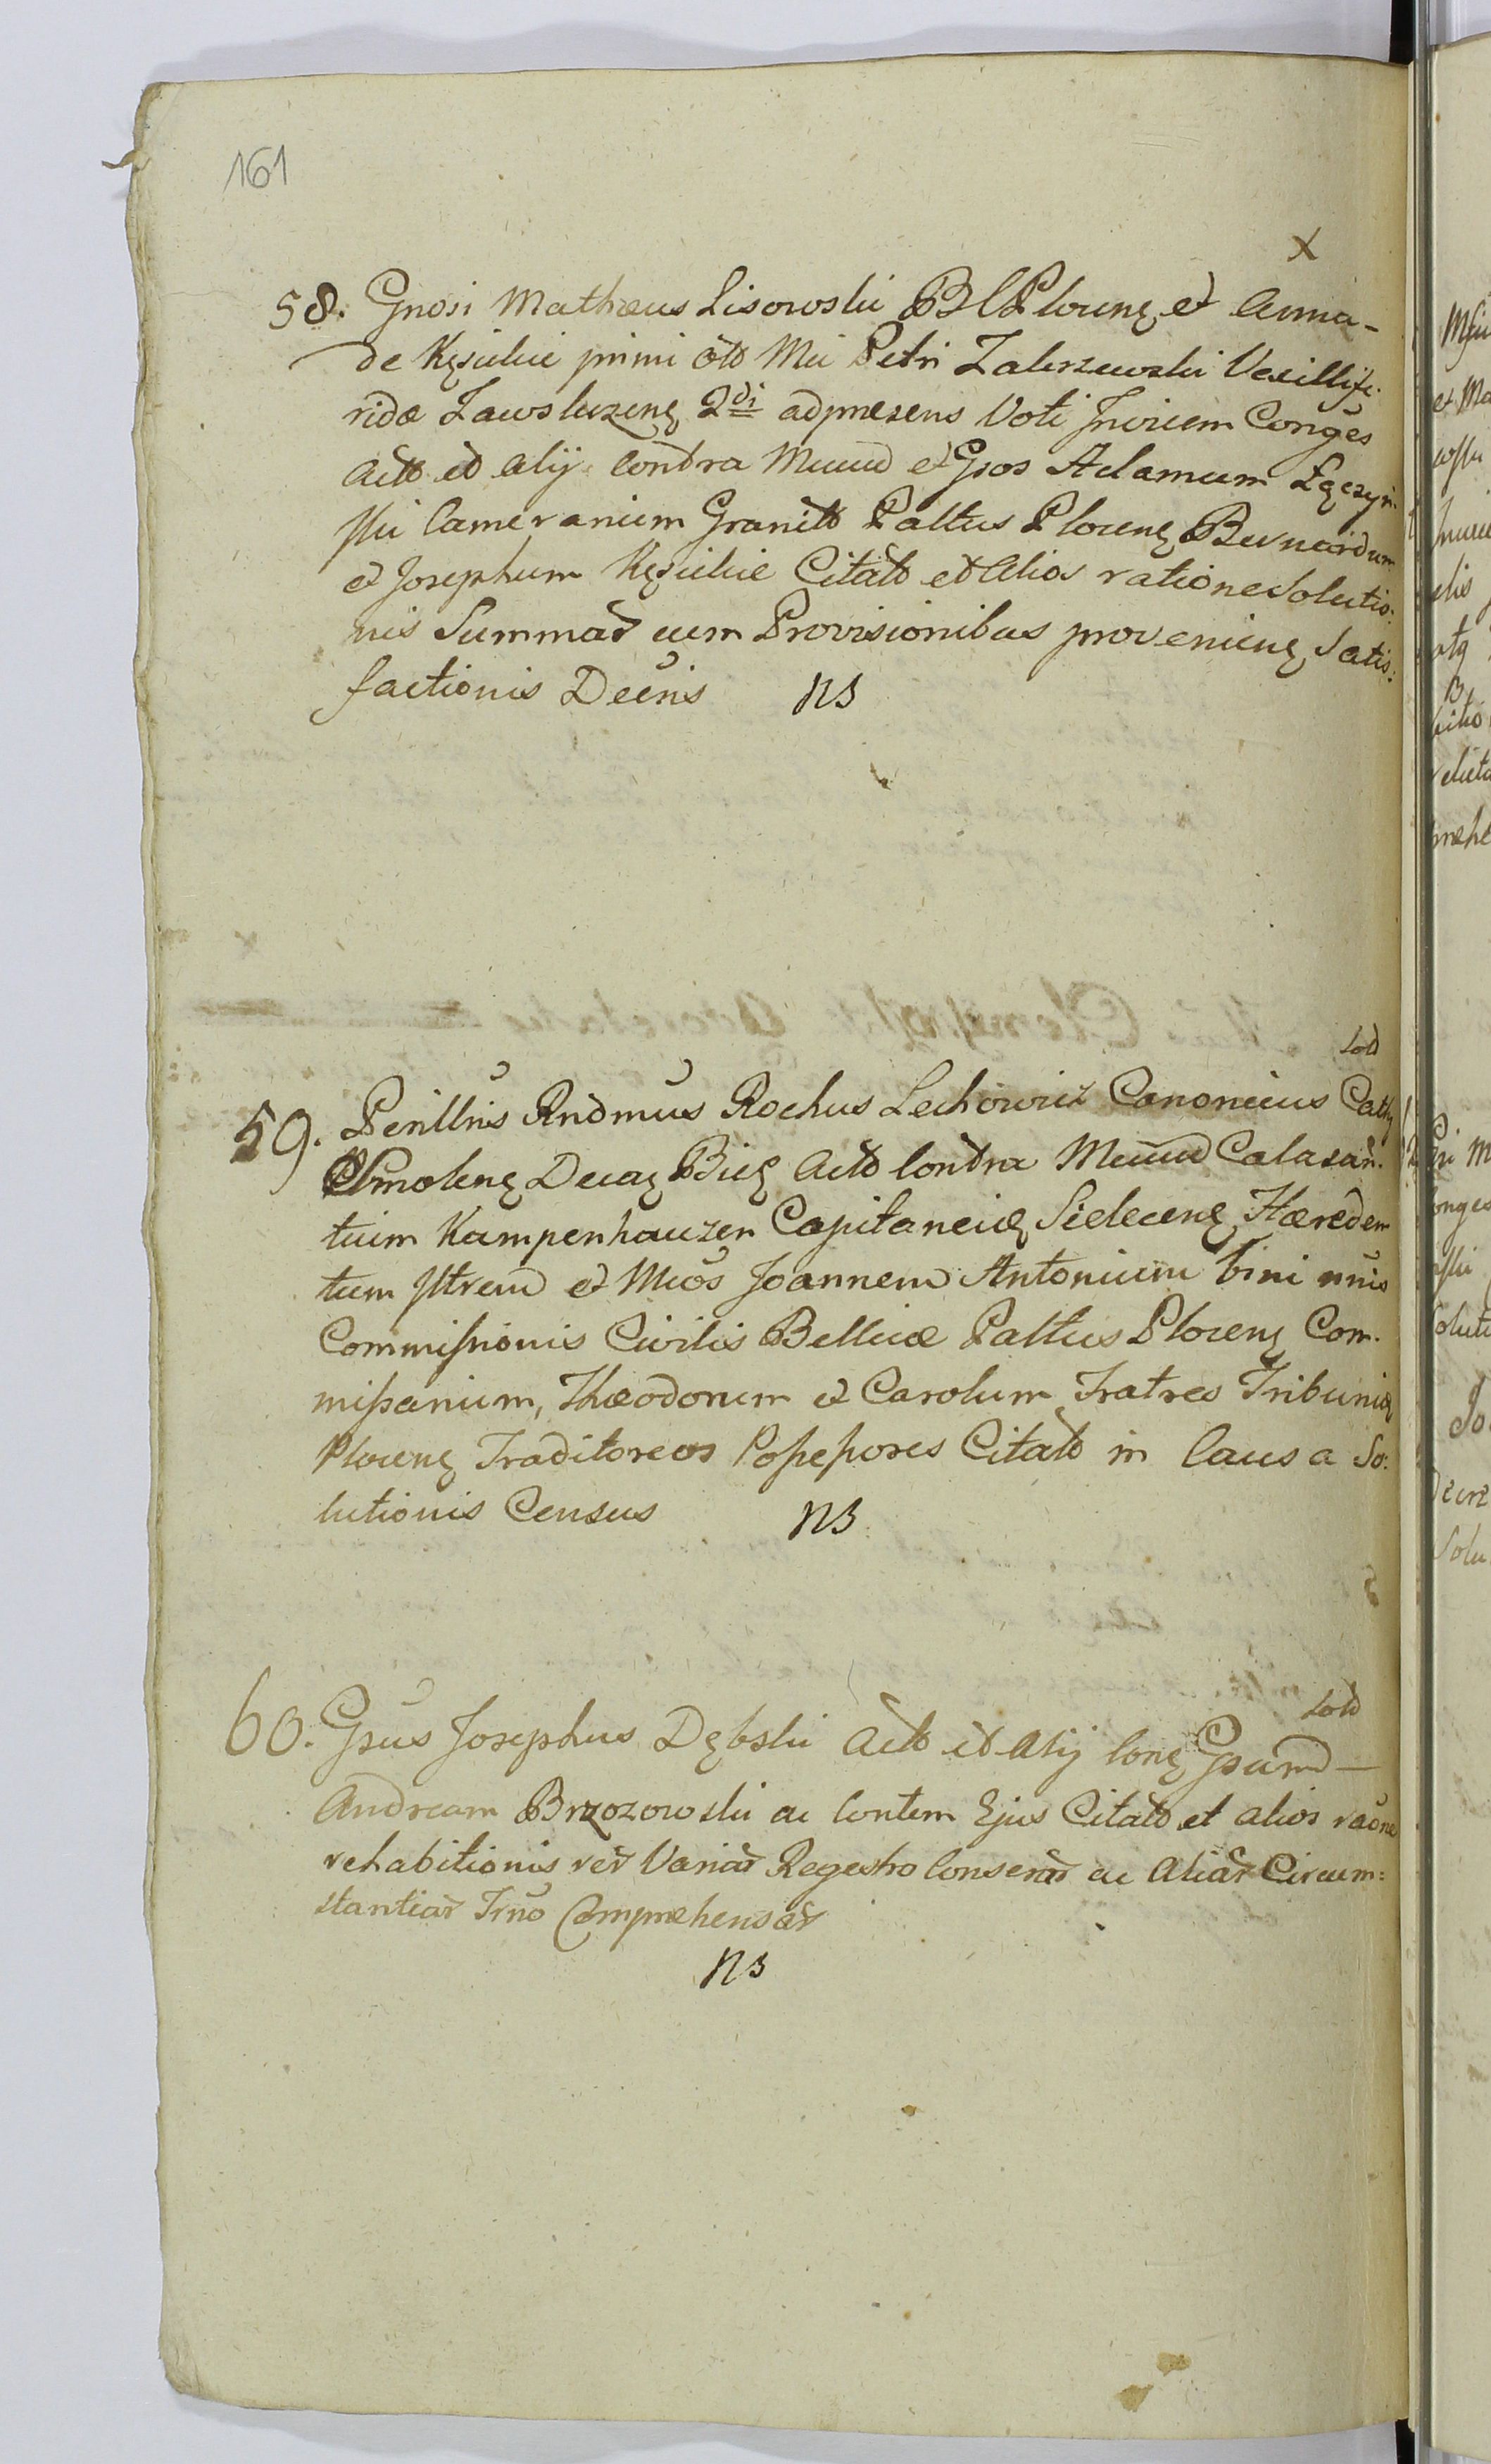 161
X
58. Gnosi Mathæus Lisowski BCPlocens et Anna-
de Kęsickie primi Mci Petri Zakrzewski Vexillife.
ridæ Zawskrzens 2di adpræsens Voti Invicem Conges
Actt et Alij contra Mcum et Gsos Adamum Łączyń.
ski Camerarium Granitt Palttus Plocens Bernardum
et Josephum Kęsickie Citatt et Alios ratione Solutio:
nis Summar cum Provisionibus provenien Satis:
factionis Decris NS
Sott
59. Perillris Rndmus Rochus Lechowicz Canonicus Cath
Smolens Decas Actt contra Calasan.
tium Kampenhauzen Capitaneidę Sielecens Hæredem
tum et Mcos Joannem Antonium bini nnis
Commissionis Civilis Bellicæ Palttus Plocens Com.
missarium, Theodorum et Carolum Fratres Tribunidę
Plocens Traditoreos Possessores Citatt in Causa So:
lutionis Census NS
60. Gsus Josephus Dębski Actt et Alij Cons Gsum
Sott
Andream Brzozowski ac Contem Ejus Citatt et alios raõne
rehabitionis rer Variar Regestro Conserar ac Aliar Circum:
stantiar Trno Comprehensar
NS